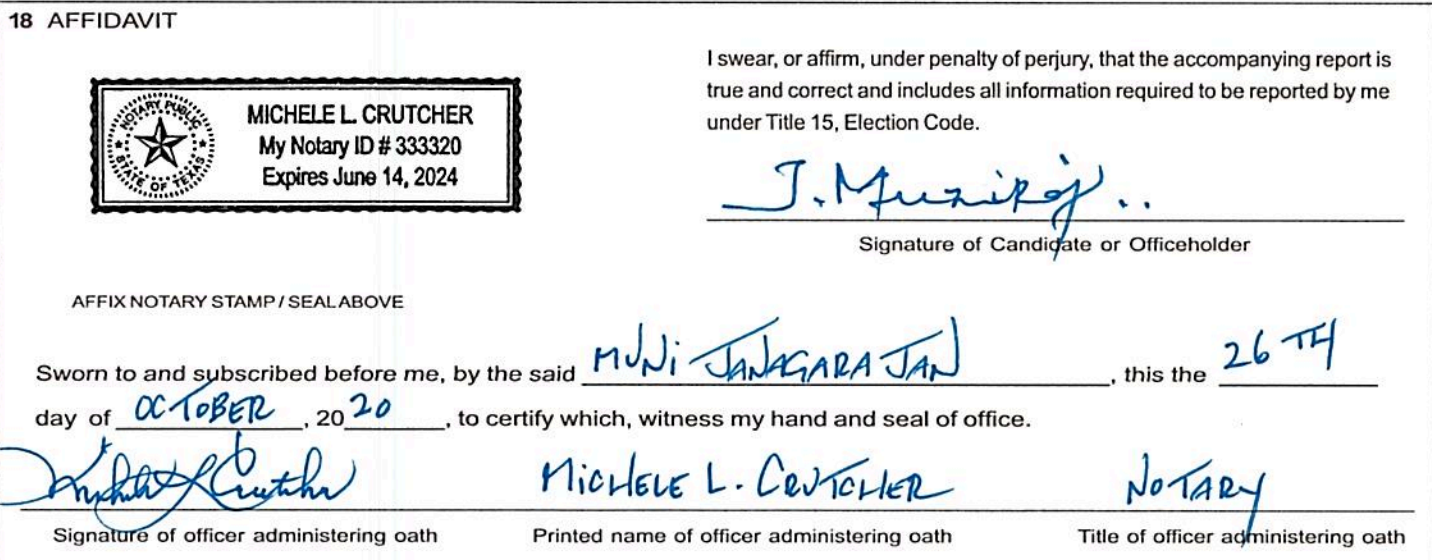 18 AFFIDAVIT
NOTARY PUBLIC
STATE OF TEXAS
MICHELE L. CRUTCHER
My Notary ID # 333320
Expires June 14, 2024
I swear, or affirm, under penalty of perjury, that the accompanying report is
true and correct and includes all information required to be reported by me
under Title 15, Election Code.
J. Muniraj..
Signature of Candidate or Officeholder
AFFIX NOTARY STAMP / SEAL ABOVE
Sworn to and subscribed before me, by the said MUNI JANAGARAJAN, this the 26TH
day of OCTOBER, 2020, to certify which, witness my hand and seal of office.
Michele L Crutcher MICHELE L. CRUTCHER NOTARY
Signature of officer administering oath Printed name of officer administering oath Title of officer administering oath